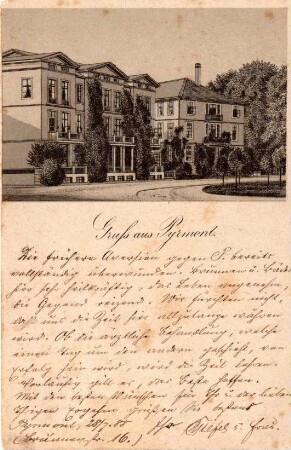 Gruss aus Pyrmont.
Die frühere Aversion gegen P. bereits
vollständig überwunden. Brunnen u. Bäder
hier sehr heilkräftig, das Leben angenehm,
die Gegend reizend. Wir fürchten nicht,
daß uns die Zeit hier allzulange währen
wird. Ob die ärztliche Behandlung, welche
einen Tag um den andern geschieht, von
Erfolg sein wird, wird die Zeit lehren.
Vorläufig gilt es, das Beste hoffen.
Mit den besten Wünschen für Ihr u. der lieben
Ihrigen Ergehen grüßen Sie bestens
Pyrmont, 28/7. 85 Ihr u. Frau.
(Brunnen str. 16.)